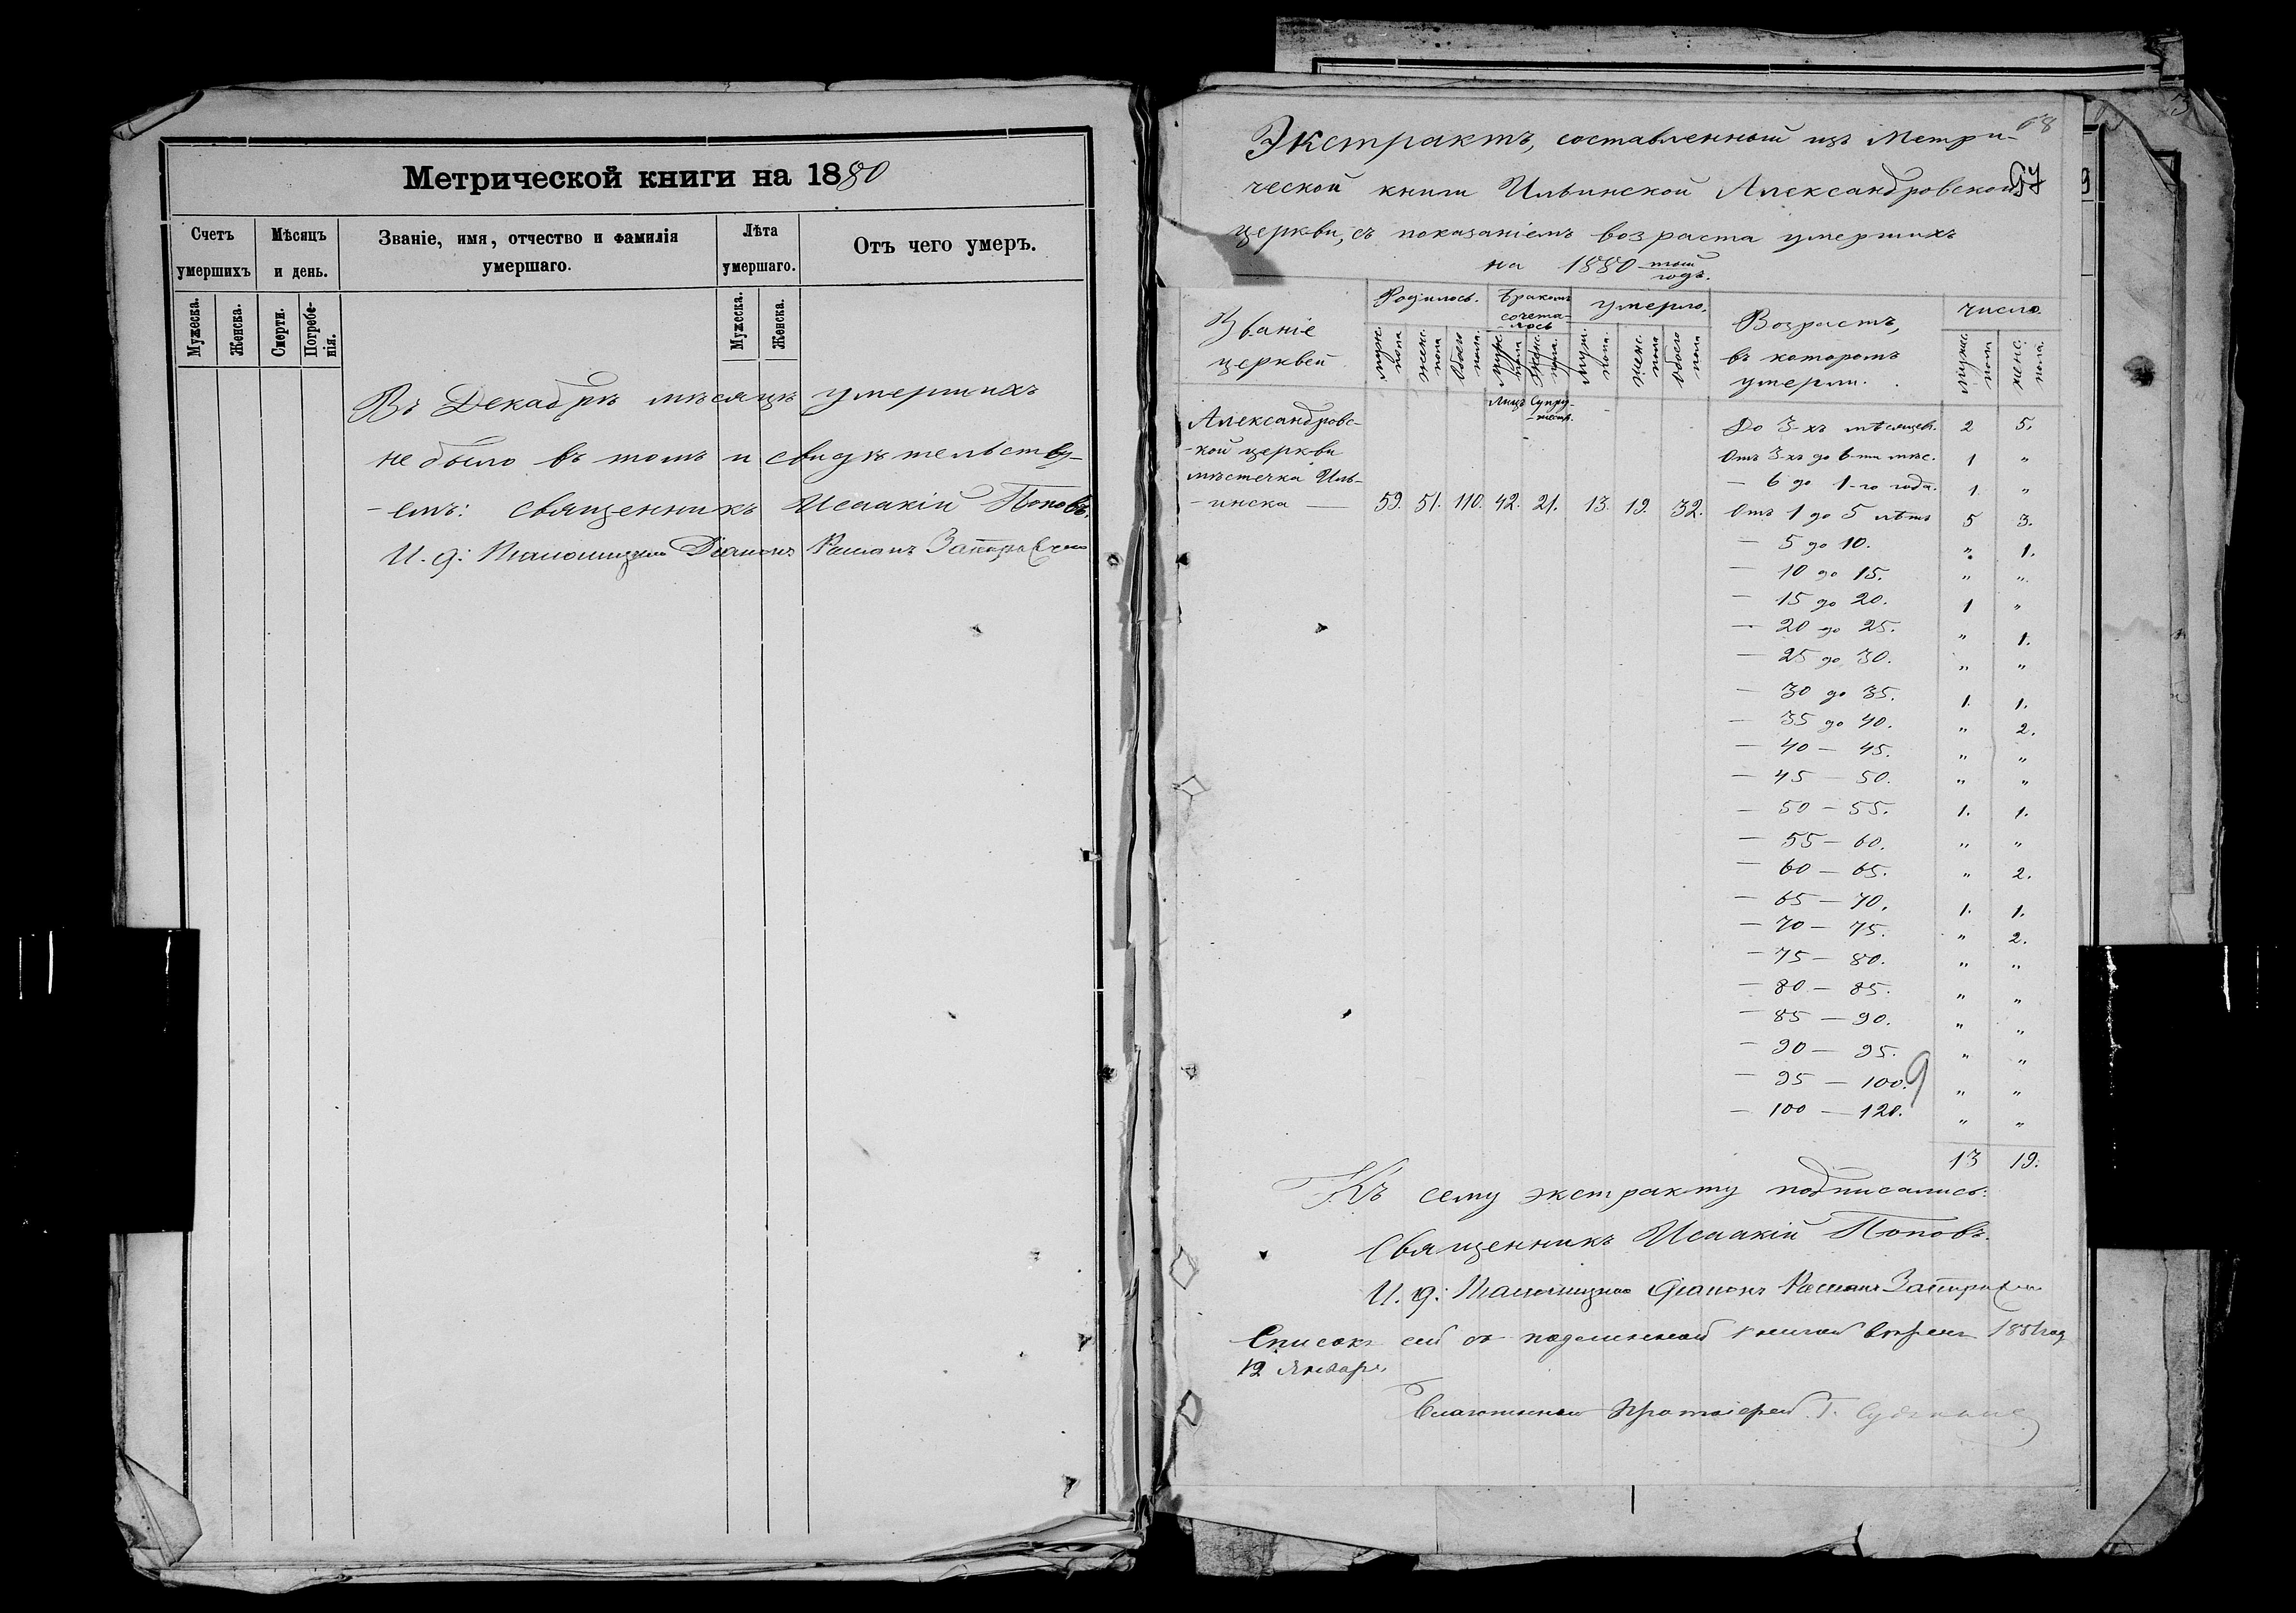 Метрической книги на 1880
Счетъ умершихъ
Мѣсяцъ и день.
Званіе, имя, отчество и фамилія умершаго.
Лѣта умершаго.
Отъ чего умеръ.
Мужеска.
Женска.
Смерти.
Погребенія.
Мужеска.
Женска.
Въ Декабрѣ мѣсяцѣ умершихъ
не было въ томъ и свидѣтельству-
-емъ: Священникъ Исаакій Поповъ.
И. д: Псаломщика Діаконъ Романъ
68
57
9
Экстрактъ, составленный изъ Метри-
ческой книги Ильинской Александровской
церкви, съ показаніемъ возраста умершихъ
на 1880-тый годъ.
Званіе церквей
Родилось.
Бракомъ сочета-лось
Умерло.
Возрастъ, въ которомъ умерли.
Число.
муж. пола
женс. пола
Обоего пола.
муж. пола
Женс. пола.
муж. пола.
женс. пола
Обоего пола
мужс. пола
женс. пола.
Лицъ Супру-жеств.
Александровс-
-кой церкви
мѣстечка Иль-
-инска — 59. 51. 110. 42. 21. 13. 19. 32.
До 3-хъ мѣсяцев. 2 5.
Отъ 3-хъ до 6-ти мѣс. 1 "
— 6 до 1-го года. 1. "
Отъ 1 до 5 лѣтъ 5 3.
— 5 до 10. " 1.
— 10 до 15. " "
— 15 до 20. 1 "
— 20 до 25. " 1.
— 25 до 30. " "
— 30 до 35. 1. 1.
— 35 до 40. " 2.
— 40 — 45. " "
— 45 — 50. " "
— 50 — 55. 1. 1.
— 55 — 60. " "
— 60 — 65. " 2.
— 65 — 70. 1. 1.
— 70 — 75. " 2.
— 75 — 80. " "
— 80 — 85. " "
— 85 — 90. " "
— 90 — 95. " "
— 95 — 100. " "
9
— 100 — 120. " "
13 19.
Къ сему экстракту подписались:
Священникъ Исаакій Поповъ.
И. д: Псаломщика Діаконъ Романъ
Списокъ сей съ подлинной книгой вѣренъ 1881 год
12 Января
Благочинный Протоіерей Г.